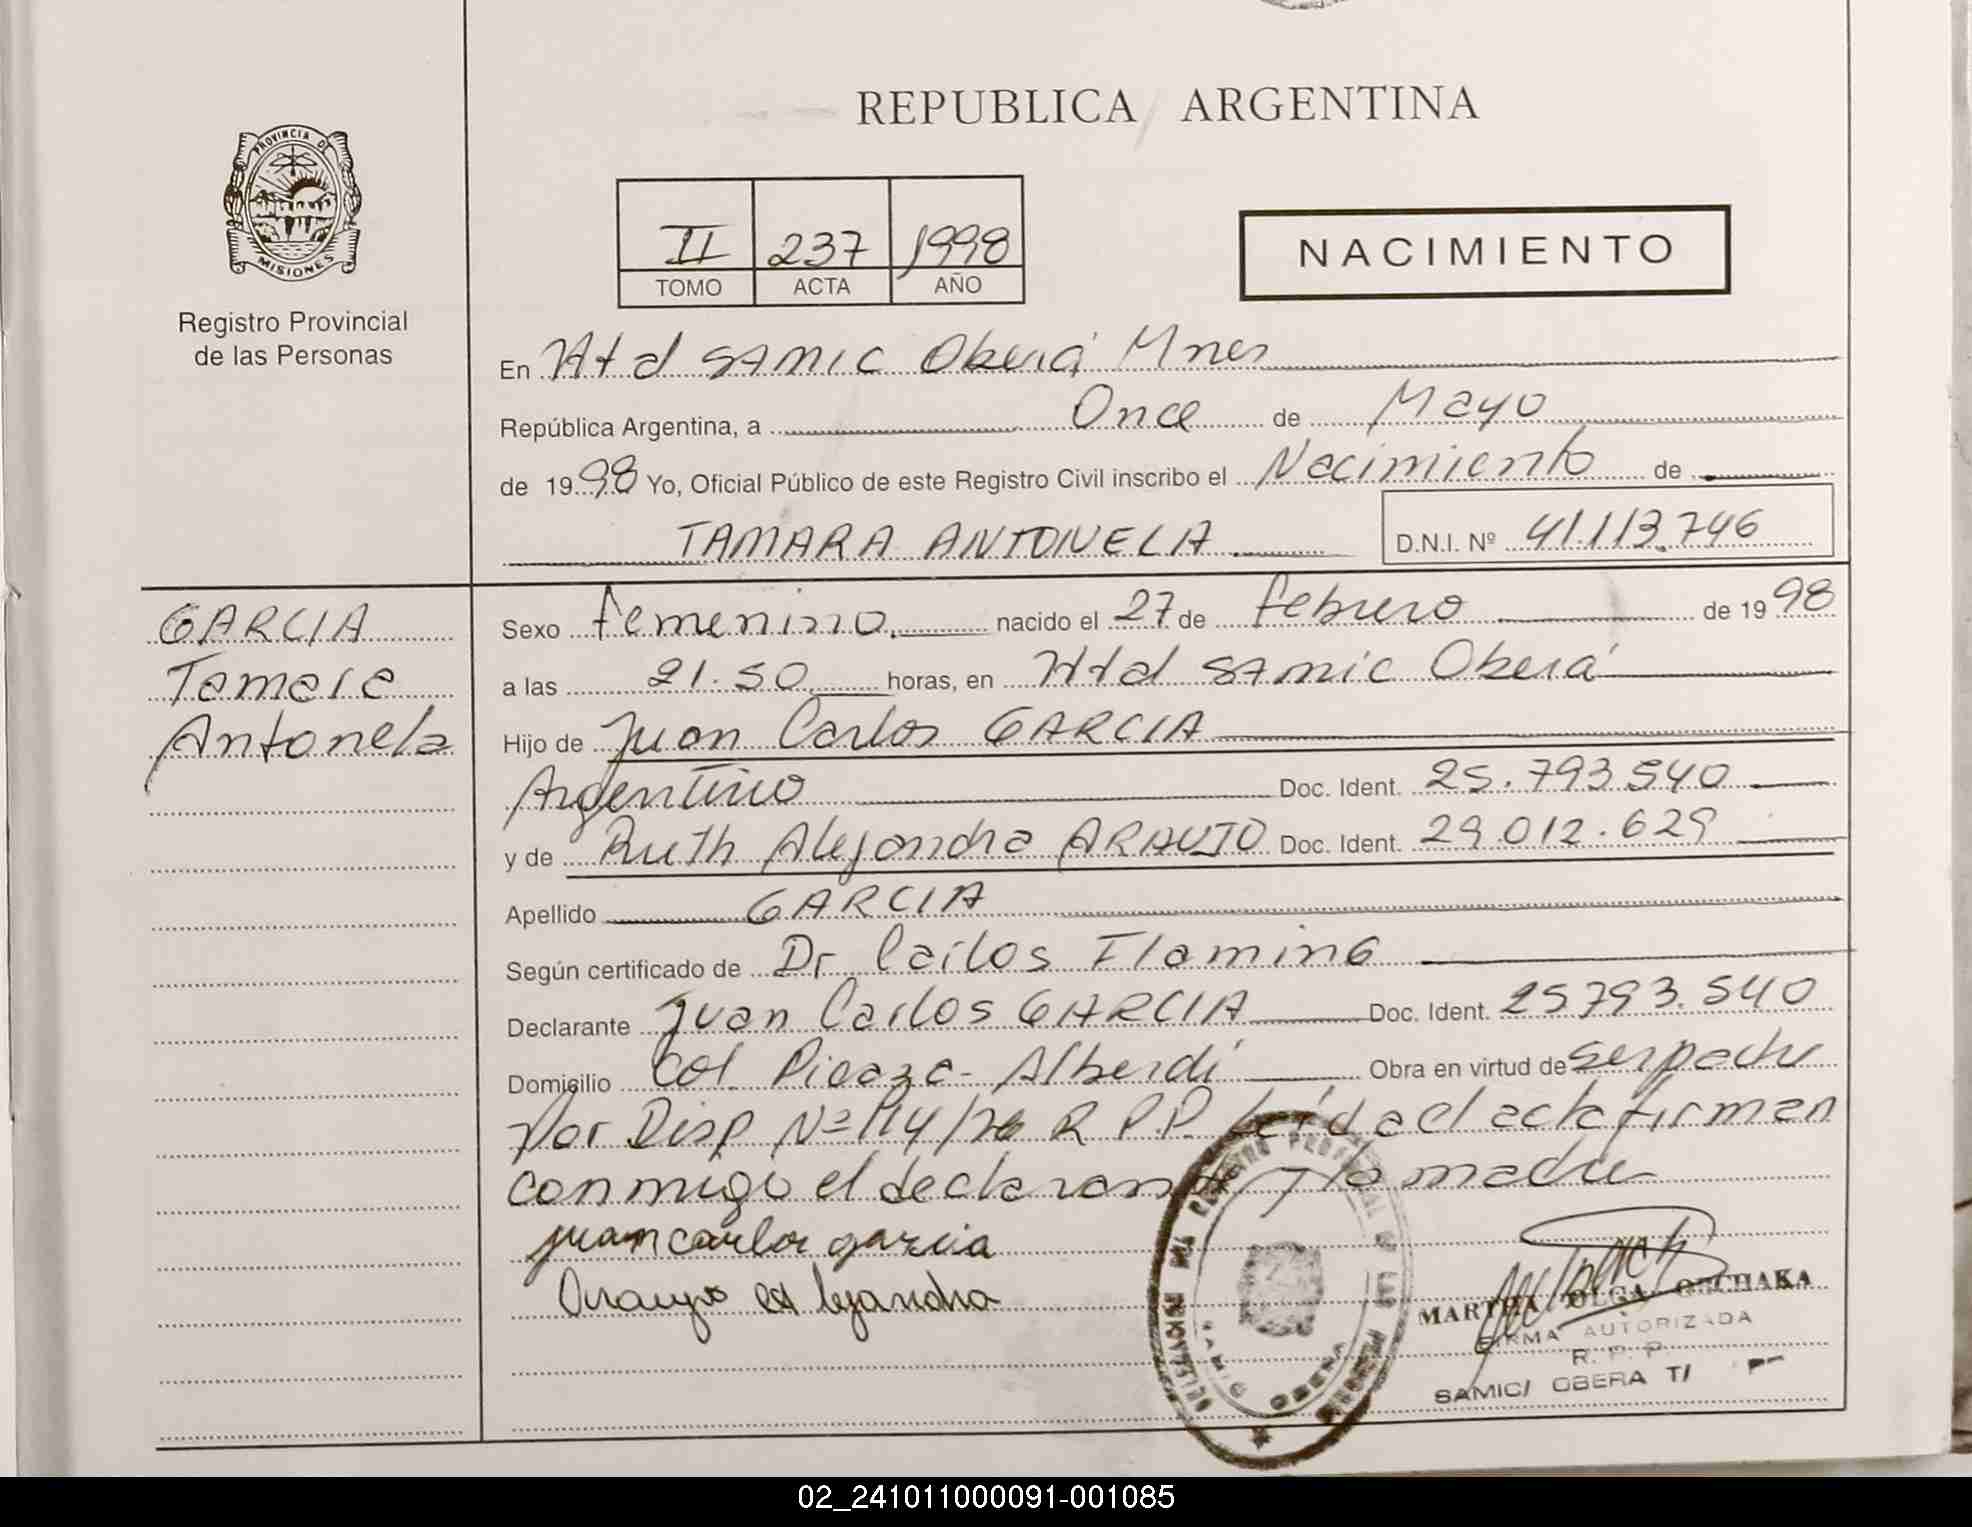 REPUBLICA ARGENTINA
PROVINCIA DE
MISIONES
Registro Provincial
de las Personas
II 237 1998
TOMO ACTA AÑO
NACIMIENTO
En Htal SAMIC Oberá Mnes
República Argentina, a Once de Mayo
de 1998 Yo, Oficial Público de este Registro Civil inscribo el Nacimiento de
TAMARA ANTONELA D.N.I. Nº 41.113.746
GARCIA
Tamara
Antonela
Sexo femenino nacido el 27 de febrero de 1998
a las 21.50 horas, en Htal SAMIC Oberá
Hijo de Juan Carlos GARCIA
Argentino Doc. Ident. 25.793.540
y de Ruth Alejandra ARAUJO Doc. Ident. 29.012.629
Apellido GARCIA
Según certificado de Dr Carlos Flaming
Declarante Juan Carlos GARCIA Doc. Ident. 25793.540
Domicilio Col. Picaza - Alberdi Obra en virtud de
por Disp Nº 114/76 R.P.P. Leída el acta firman
conmigo el declarante y la madre
juan carlos garcia
Araujo alejandra
MARTHA OLGA
FIRMA AUTORIZADA
R. P. P.
SAMIC/ OBERA T/
02_241011000091-001085